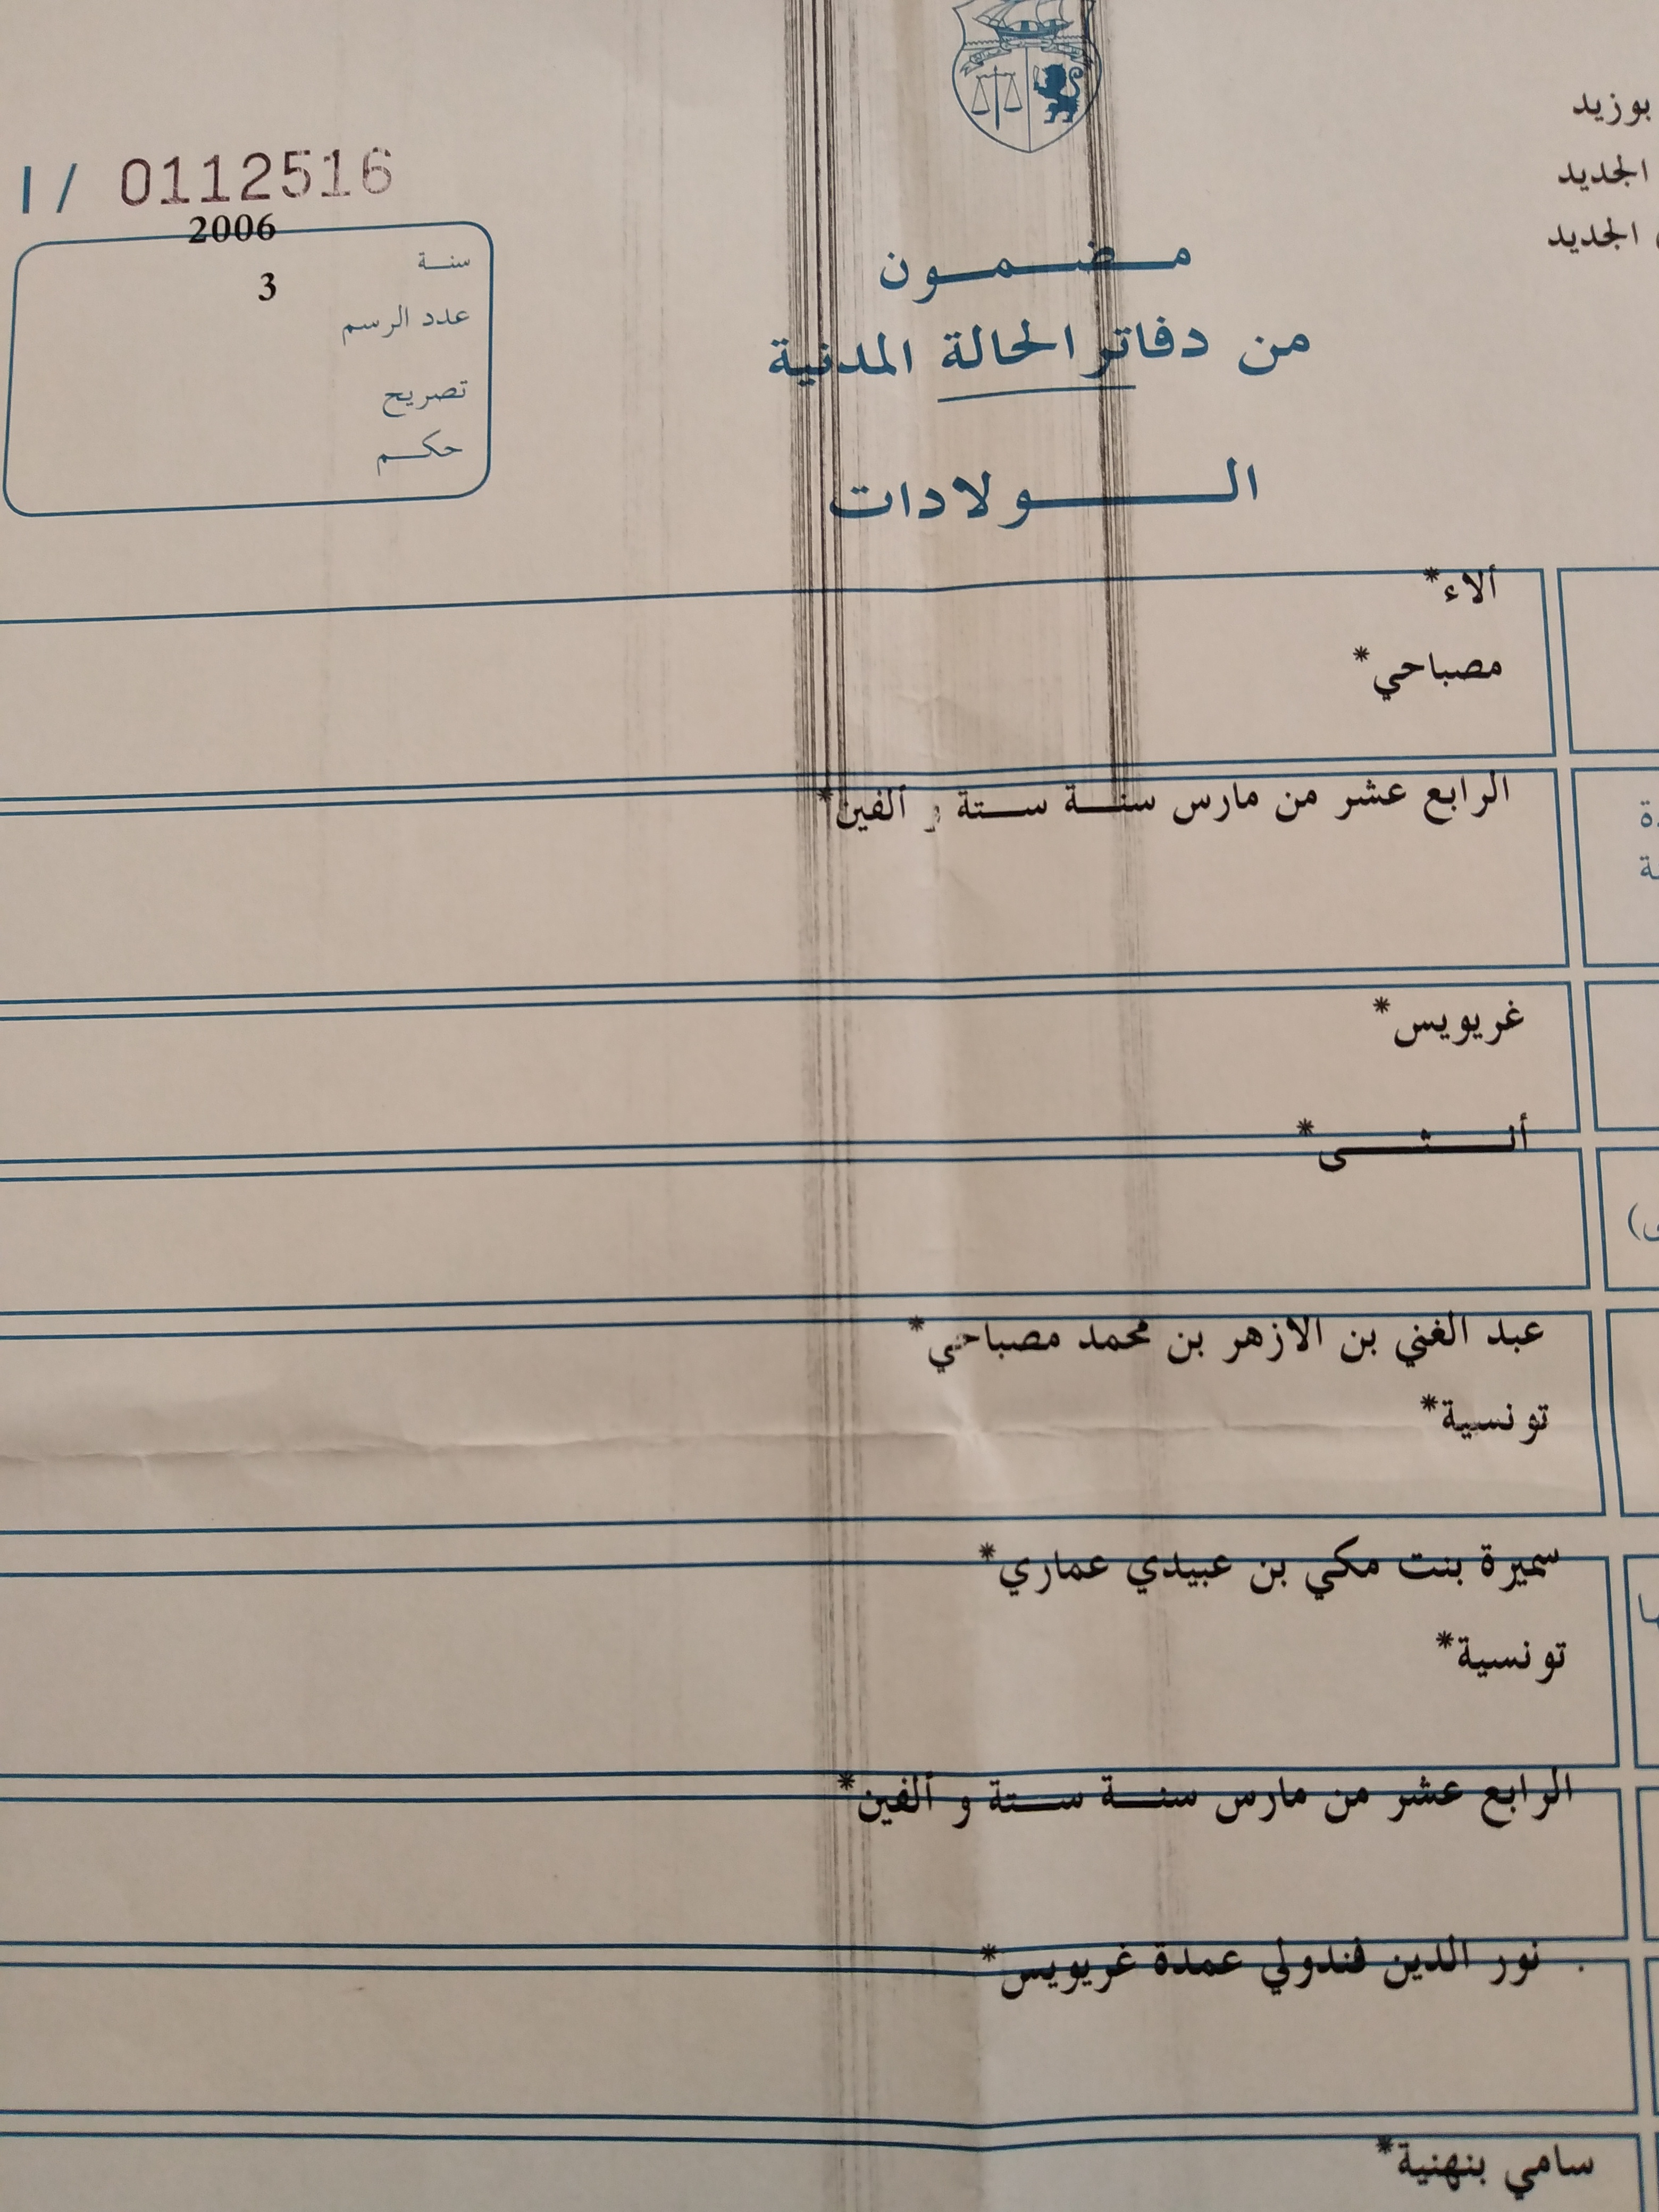 بوزيد
الجديد
الجديد
I / 0112516
2006
سنة
3
عدد الرسم
تصريح
حكم
مضمون
من دفاتر الحالة المدنية
الولادات
ألاء*
مصباحي*
الرابع عشر من مارس سنة ستة و ألفين*
غريويس*
أنثى*
عبد الغني بن الازهر بن محمد مصباحي*
تونسية*
سميرة بنت مكي بن عبيدي عماري*
تونسية*
الرابع عشر من مارس سنة ستة و ألفين*
نور الدين فندولي عمدة غريويس*
سامي بنهنية*